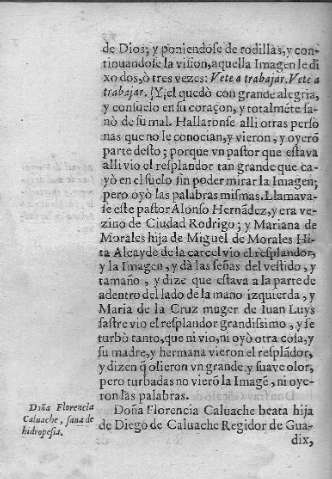 de Dios; y poniendose de rodillas, y con-
tinuandose la vision, aquella Imagen le di
xo dos, ò tres vezes: Vete a trabajar. Vete a
trabajar. Y, el quedò con grande alegria,
y consuelo en su coraçon, y totalmẽte sa-
nò de su mal. Hallaronse alli otras perso
nas que no le conocian, y vieron, y oyerõ
parte desto; porque vn pastor que estava
alli vio el resplandor tan grande que ca-
yò en el suelo sin poder mirar la Imagen;
pero oyò las palabras mismas. Llamava-
se este pastor Alonso Hernãdez, y era ve-
zino de Ciudad Rodrigo; y Mariana de
Morales hija de Miguel de Morales Hi-
ta Alcayde de la carcel vio el resplandor,
y la Imagen, y dà las señas del vestido, y
tamaño, y dize que estava a la parte de
adentro del lado de la mano izquierda, y
Maria de la Cruz muger de Iuan Luys
sastre vio el resplandor grandissimo, y se
turbò tanto, que ni vio, ni oyò otra cosa, y
su madre, y hermana vieron el resplãdor,
y dizen q̃ olieron vn grande, y suave olor,
pero turbadas no vierõ la Imagẽ, ni oye-
ron las palabras.
Doña Florencia Caluache beata hija
de Diego de Caluache Regidor de Gua-
dix,
Doña Florencia
Caluache, sana de
hidropesia.